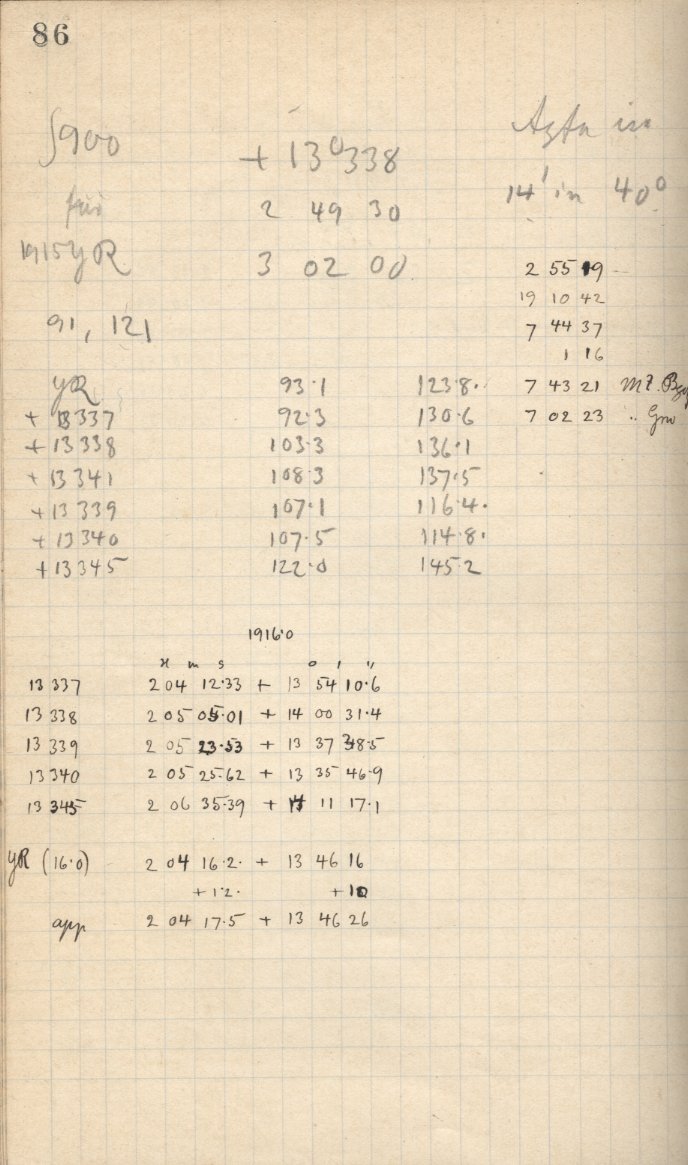 86
+ 13° 338
14' in 40°
für
2 49 30
1915 YR
3 02 00
2 55 19
19 10 42
91, 121
7 44 37
1 16
YR 93.1 123.8.
7 43 21 MT.
+ 13 337 92.3 130.6
7 02 23 "
+ 13 338 103.3 136.1
+ 13 341 108.3 137.5
+ 13 339 107.1 116.4.
+ 13 340 107.5 114.8.
+ 13 345 122.0 145.2
1916.0
H m s ° ' "
13 337 2 04 12.33 + 13 54 10.6
13 338 2 05 05.01 + 14 00 31.4
13 339 2 05 23.53 + 13 37 38.5
13 340 2 05 25.62 + 13 35 46.9
13 345 2 06 35.39 + 14 11 17.1
YR (16.0) 2 04 16.2. + 13 46 16
+ 1.2. + 10
app 2 04 17.5 + 13 46 26